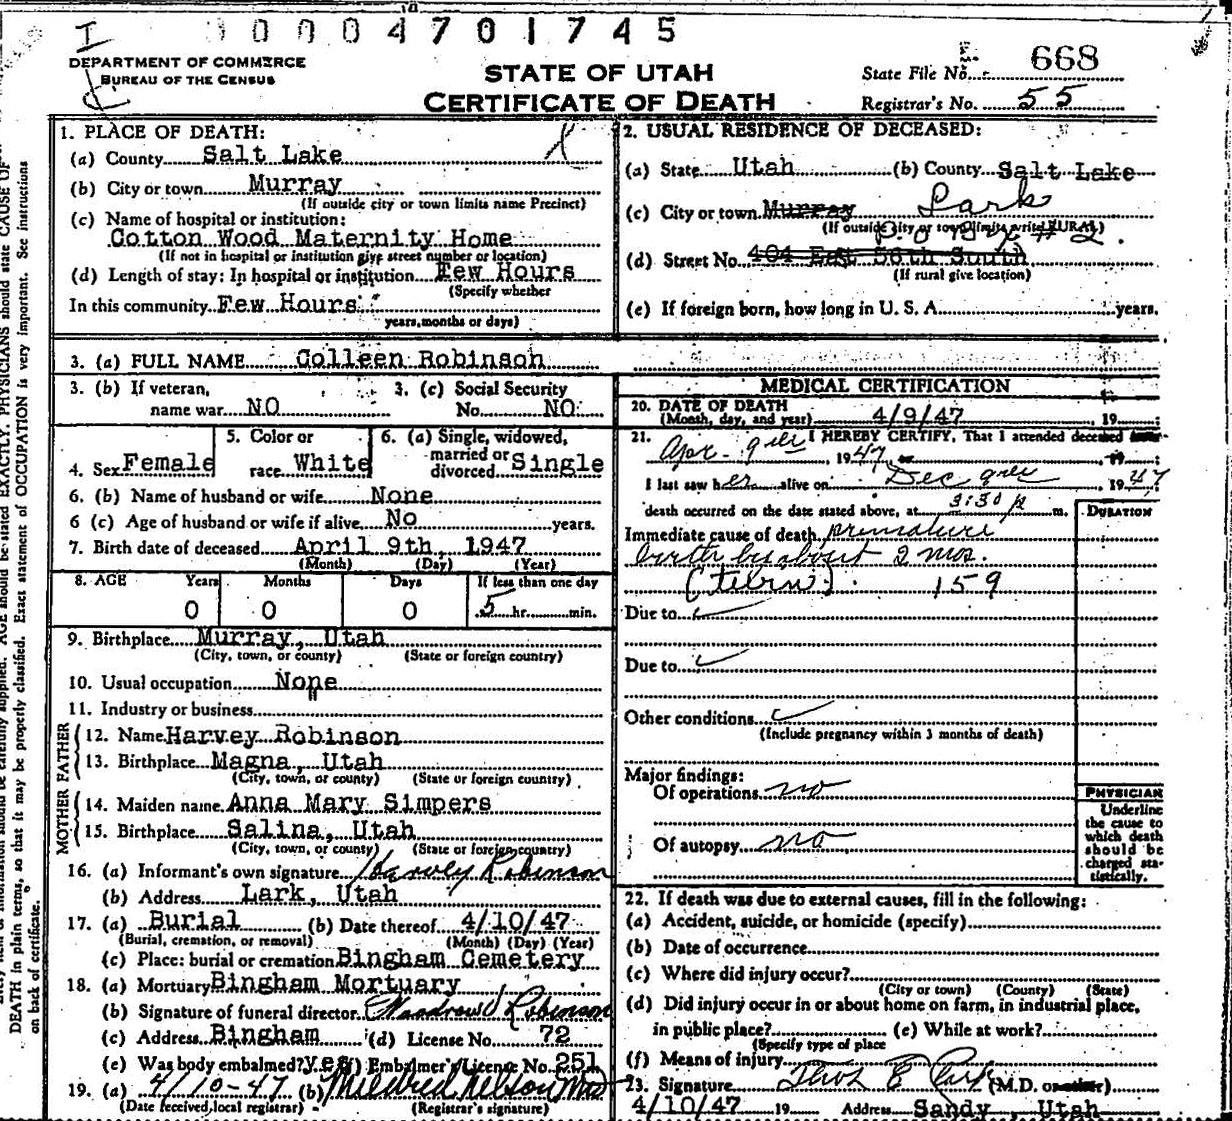 I 0004701745
DEPARTMENT OF COMMERCE
BUREAU OF THE CENSUS
STATE OF UTAH
CERTIFICATE OF DEATH
State File No. 668
Registrar's No. 55
1. PLACE OF DEATH:
(a) County Salt Lake
(b) City or town Murray
(If outside city or town limits name Precinct)
(c) Name of hospital or institution:
Cotton Wood Maternity Home
(If not in hospital or institution give street number or location)
(d) Length of stay: In hospital or institution Few Hours
(Specify whether
In this community Few Hours
years, months or days)
2. USUAL RESIDENCE OF DECEASED:
(a) State Utah (b) County Salt Lake
(c) City or town Murray Lark
(If outside city or town limits write RURAL)
P.O. Box #2.
(d) Street No. 404 East 56th South
(If rural give location)
(e) If foreign born, how long in U. S. A. years.
3. (a) FULL NAME Colleen Robinson
3. (b) If veteran,
name war NO
3. (c) Social Security
No. NO
4. Sex Female
5. Color or
race White
6. (a) Single, widowed,
married or
divorced Single
6. (b) Name of husband or wife None
6 (c) Age of husband or wife if alive No years.
7. Birth date of deceased April 9th, 1947
(Month) (Day) (Year)
8. AGE Years Months Days If less than one day
0 0 0 5 hr. min.
9. Birthplace Murray, Utah
(City, town, or county) (State or foreign country)
10. Usual occupation None
11. Industry or business
FATHER
12. Name Harvey Robinson
13. Birthplace Magna, Utah
(City, town, or county) (State or foreign country)
MOTHER
14. Maiden name Anna Mary Simpers
15. Birthplace Salina, Utah
(City, town, or county) (State or foreign country)
16. (a) Informant's own signature Harvey Robinson
(b) Address Lark, Utah
17. (a) Burial (b) Date thereof 4/10/47
(Burial, cremation, or removal) (Month) (Day) (Year)
(c) Place: burial or cremation Bingham Cemetery
18. (a) Mortuary Bingham Mortuary
(b) Signature of funeral director Woodrow Robinson
(c) Address Bingham (d) License No. 72
(e) Was body embalmed? yes (f) Embalmer's License No. 251
19. (a) 4/10-47 (b) Mildred Nelson
(Date received, local registrar) (Registrar's signature)
MEDICAL CERTIFICATION
20. DATE OF DEATH
(Month, day, and year) 4/9/47 19
21. I HEREBY CERTIFY, That I attended deceased
Apr. 9th 1947 19
I last saw her alive on Dec 9th 1947
death occurred on the date stated above, at 3:30 p m.
DURATION
Immediate cause of death premature
birth by about 2 mos.
159
Due to
Due to
Other conditions
(Include pregnancy within 3 months of death)
Major findings:
Of operations no
Of autopsy no
PHYSICIAN
Underline
the cause to
which death
should be
charged sta-
tistically.
22. If death was due to external causes, fill in the following:
(a) Accident, suicide, or homicide (specify)
(b) Date of occurrence
(c) Where did injury occur?
(City or town) (County) (State)
(d) Did injury occur in or about home on farm, in industrial place,
in public place? (e) While at work?
(Specify type of place
(f) Means of injury
23. Signature (M.D. or other)
4/10/47 19 Address Sandy, Utah
AGE should be stated EXACTLY. PHYSICIANS should state CAUSE OF
DEATH in plain terms, so that it may be properly classified. Exact statement of OCCUPATION is very important. See instructions
on back of certificate.